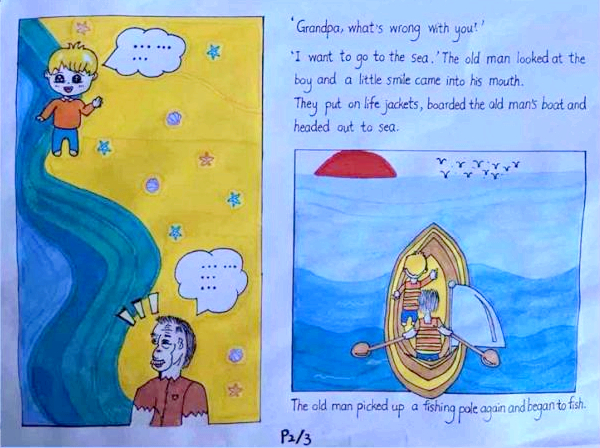 'Grandpa, what's wrong with you?'
'I want to go to the sea.' The old man looked at the
boy and a little smile came into his mouth.
They put on life jackets, boarded the old man's boat and
headed out to sea.
The old man picked up a fishing pole again and began to fish.
P2/3